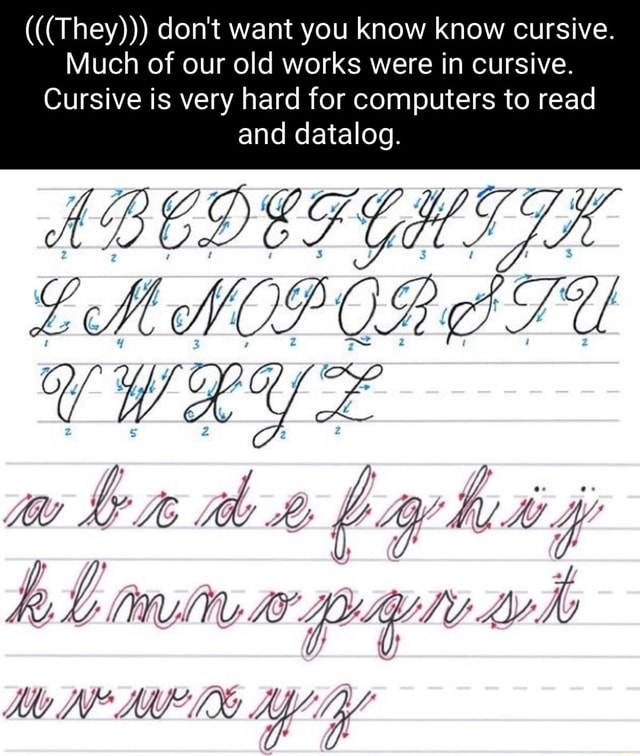 (((They))) don't want you know know cursive.
Much of our old works were in cursive.
Cursive is very hard for computers to read
and datalog.
A B C D E F G H I J K
L M N O P Q R S T U
V W X Y Z
a b c d e f g h i j
k l m n o p q r s t
u v w x y z